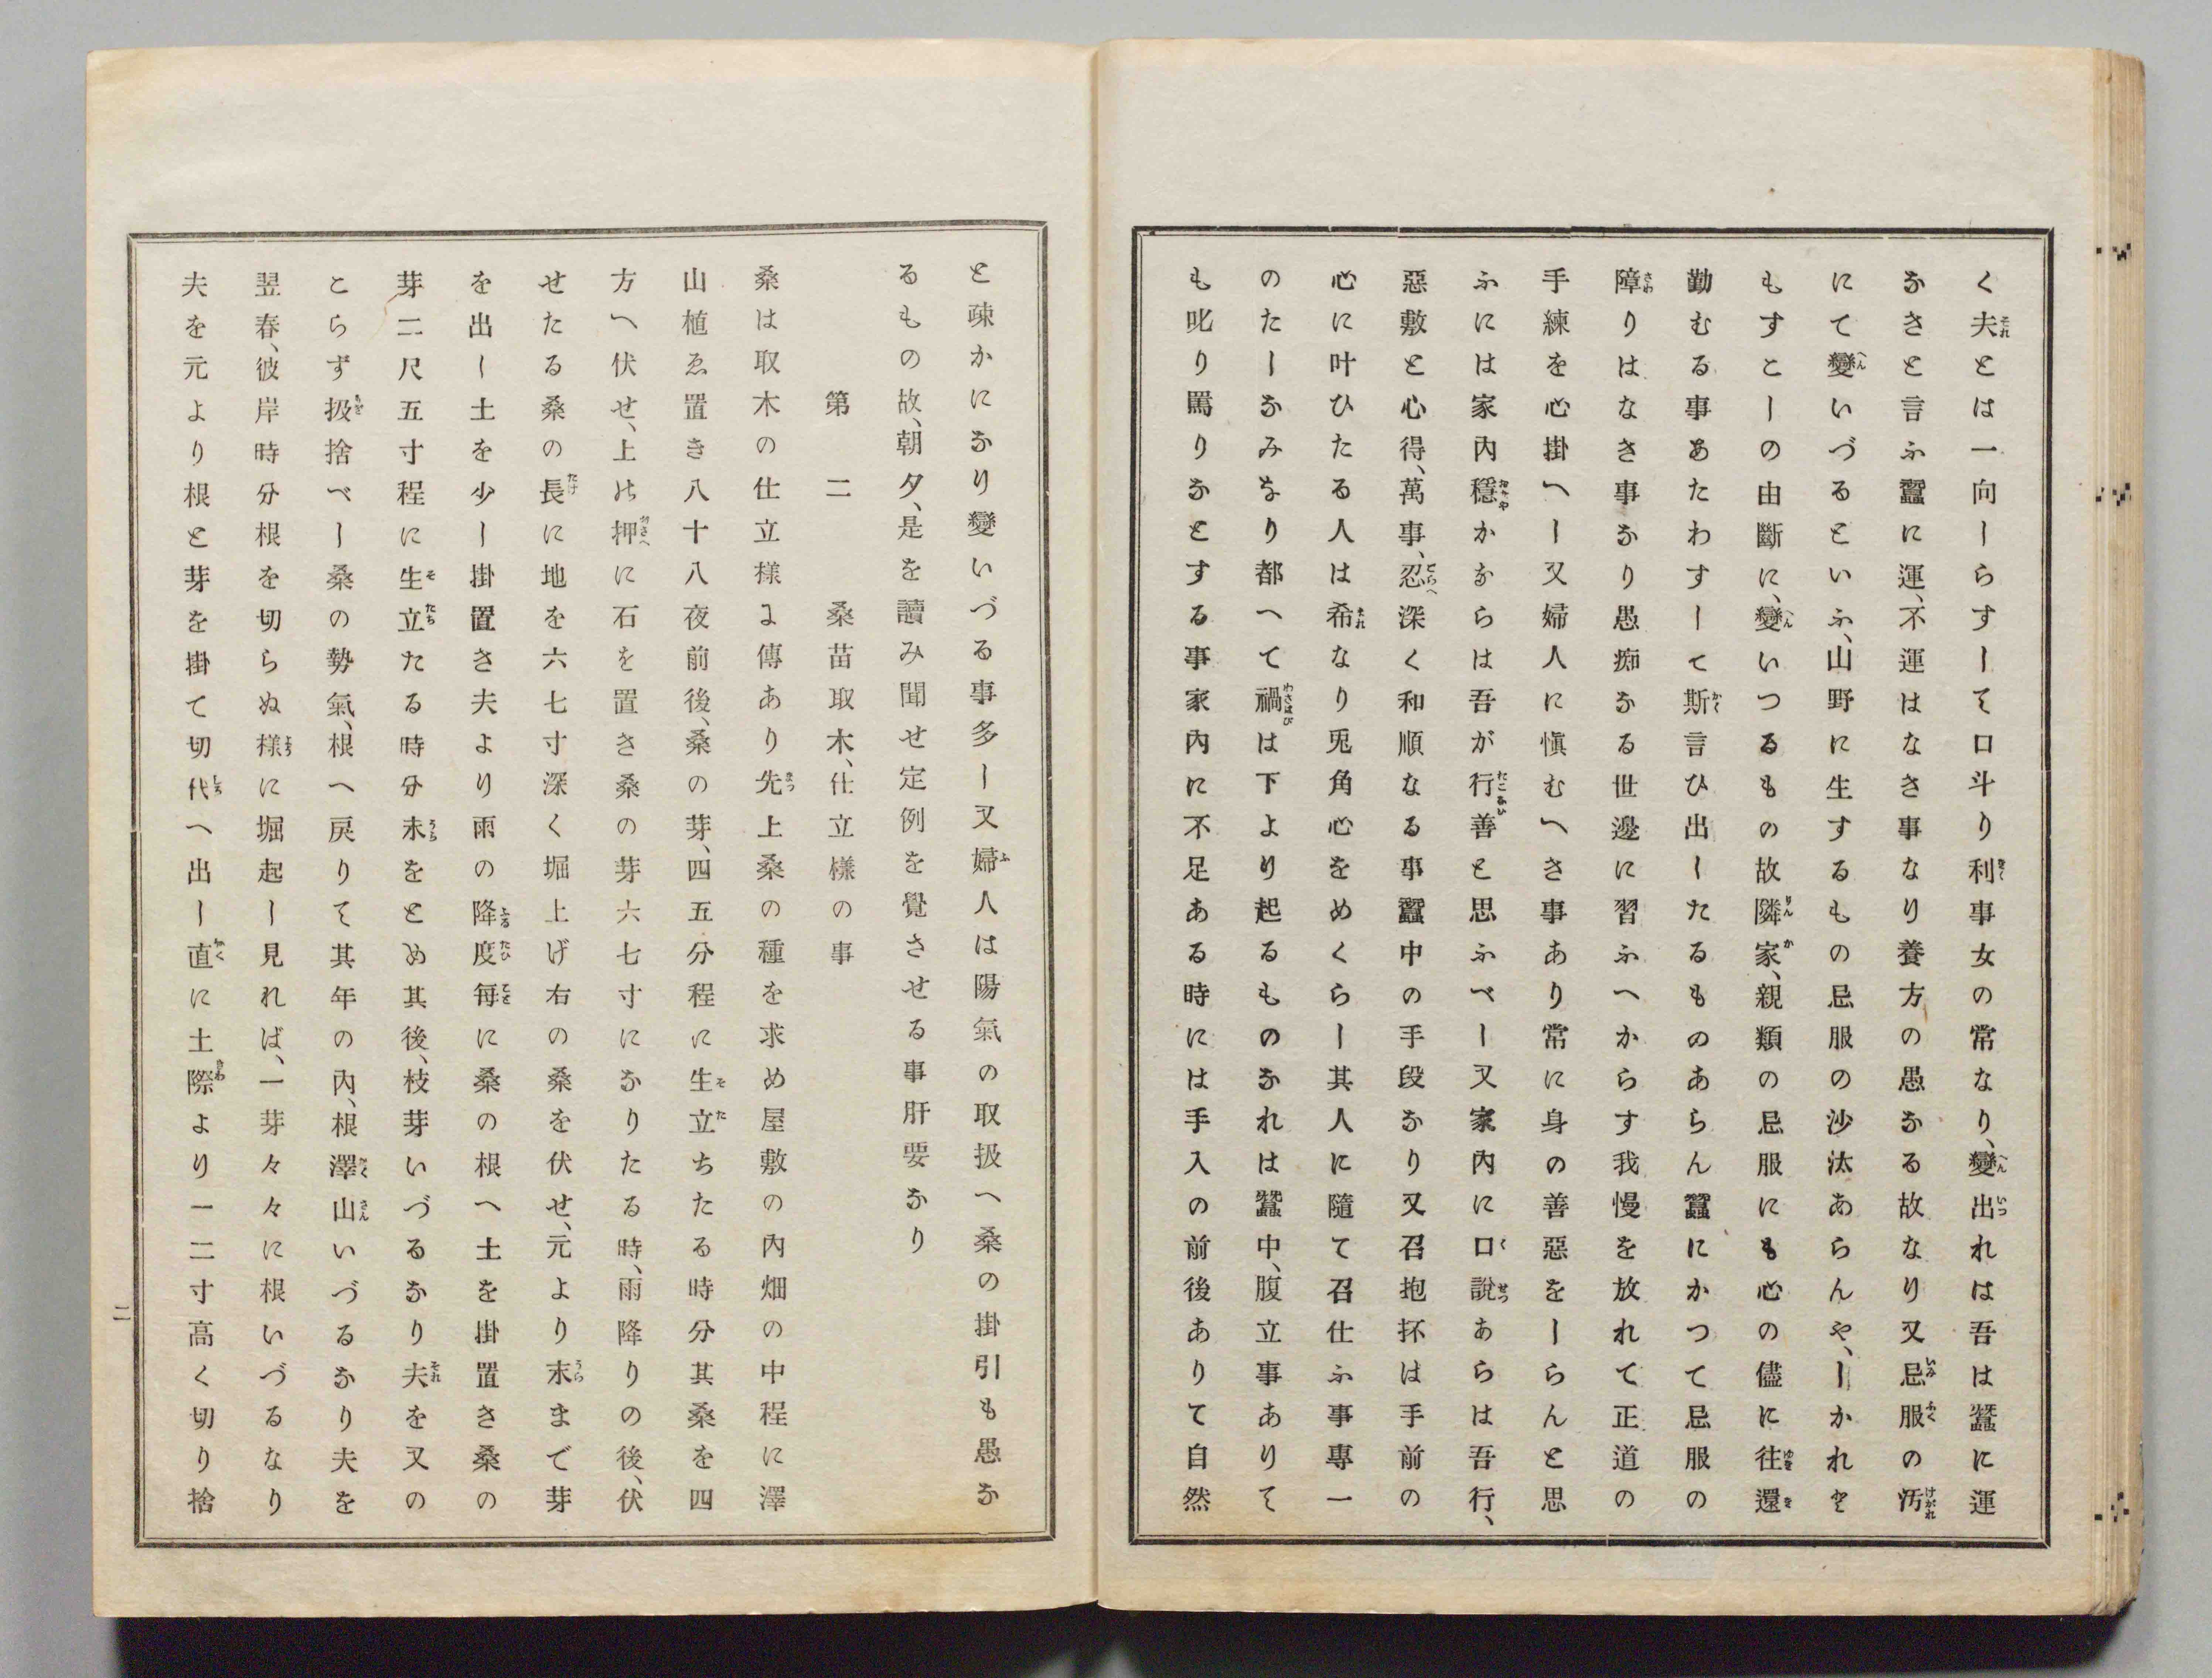 く夫とは一向しらすして口斗り利事女の常なり、變出れは吾は蠶に運
なさと言ふ蠶に運、不運はなき事なり養方の愚なる故なり又忌服の汚
にて變いづるといふ、山野に生するもの忌服の沙汰あらんや、しかれど
もすこしの由斷に、變いつるもの故隣家、親類の忌服にも心の儘に往還
勤むる事あたわすして斯言ひ出したるものあらん蠶にかつて忌服の
障りはなき事なり愚痴なる世邊に習ふへからす我慢を放れて正道の
手練を心掛へし又婦人に愼むへき事あり常に身の善惡をしらんと思
ふには家內穩かならは吾が行善と思ふべし又家內に口說あらは吾行、
惡敷と心得、萬事、忍深く和順なる事蠶中の手段なり又召抱抔は手前の
心に叶ひたる人は希なり兎角心をめくらし其人に隨て召仕ふ事專一
のたしなみなり都へて禍は下より起るものなれは蠶中、腹立事ありて
も叱り罵りなとする事家內に不足ある時には手入の前後ありて自然
と疎かになり變いづる事多し又婦人は陽氣の取扱へ桑の掛引も愚な
るもの故、朝夕、是を讀み聞せ定例を覺させる事肝要なり
第二　桑苗取木、仕立樣の事
桑は取木の仕立樣に傳あり先上桑の種を求め屋敷の內畑の中程に澤
山植ゑ置き八十八夜前後、桑の芽、四五分程に生立ちたる時分其桑を四
方へ伏せ、上は押に石を置き桑の芽六七寸になりたる時、雨降りの後、伏
せたる桑の長に地を六七寸深く堀上げ右の桑を伏せ、元より末まで芽
を出し土を少し掛置き夫より雨の降度每に桑の根へ土を掛置き桑の
芽二尺五寸程に生立たる時分末をとめ其後、枝芽いづるなり夫を又の
こらず扱捨べし桑の勢氣、根へ戾りて其年の內、根澤山いづるなり夫を
翌春、彼岸時分根を切らぬ樣に堀起し見れば、一芽々々に根いづるなり
夫を元より根と芽を掛て切代へ出し直に土際より一二寸高く切り捨
二